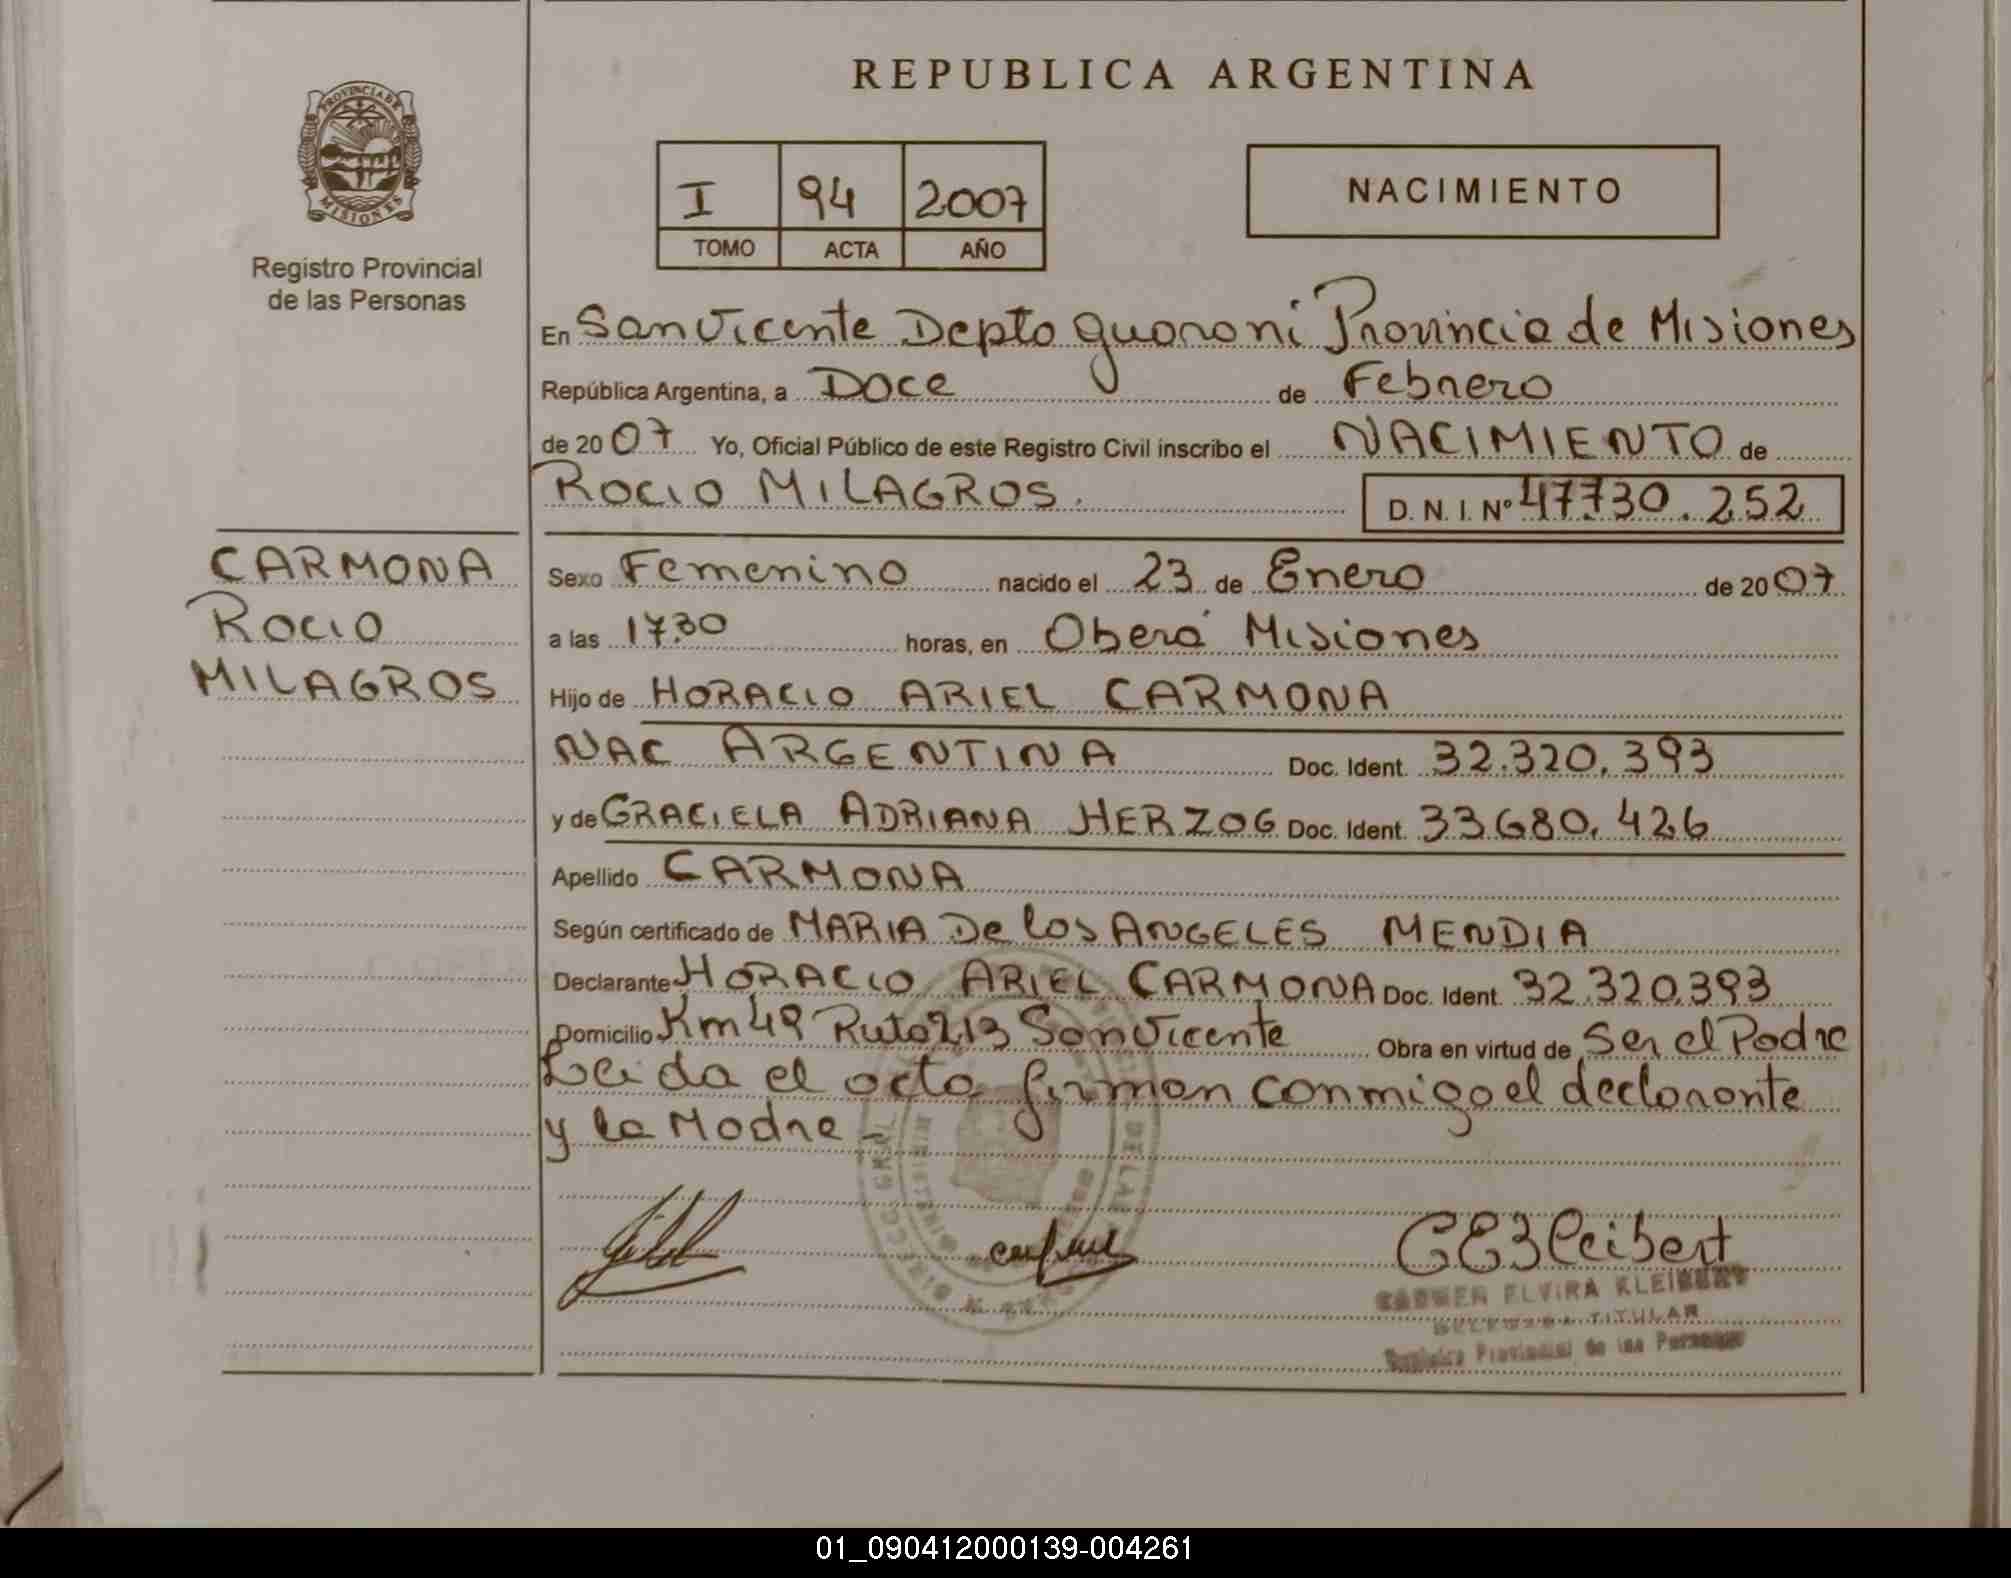 REPUBLICA ARGENTINA
PROVINCIA DE
MISIONES
Registro Provincial
de las Personas
I 94 2007
TOMO ACTA AÑO
NACIMIENTO
En San Vicente Depto Guarani Provincia de Misiones
República Argentina, a Doce de Febrero
de 2007 Yo, Oficial Público de este Registro Civil inscribo el NACIMIENTO de
ROCIO MILAGROS. D. N. I. Nº 47.730.252
CARMONA
ROCIO
MILAGROS
Sexo Femenino nacido el 23 de Enero de 2007
a las 17.30 horas, en Oberá Misiones
Hijo de HORACIO ARIEL CARMONA
NAC ARGENTINA Doc. Ident. 32.320.393
y de GRACIELA ADRIANA HERZOG Doc. Ident. 33.680.426
Apellido CARMONA
Según certificado de MARIA De los ANGELES MENDIA
Declarante HORACIO ARIEL CARMONA Doc. Ident. 32.320.393
Domicilio Km 49 Ruta 213 San Vicente Obra en virtud de Ser el Padre
Leida el acta firman conmigo el declarante
y la Madre -
CARMEN ELVIRA KLEIBERT
DELEGADA TITULAR
Registro Provincial de las Personas
01_090412000139-004261